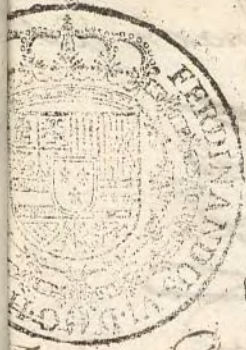 FERDINANDUS·VI·D·G·H